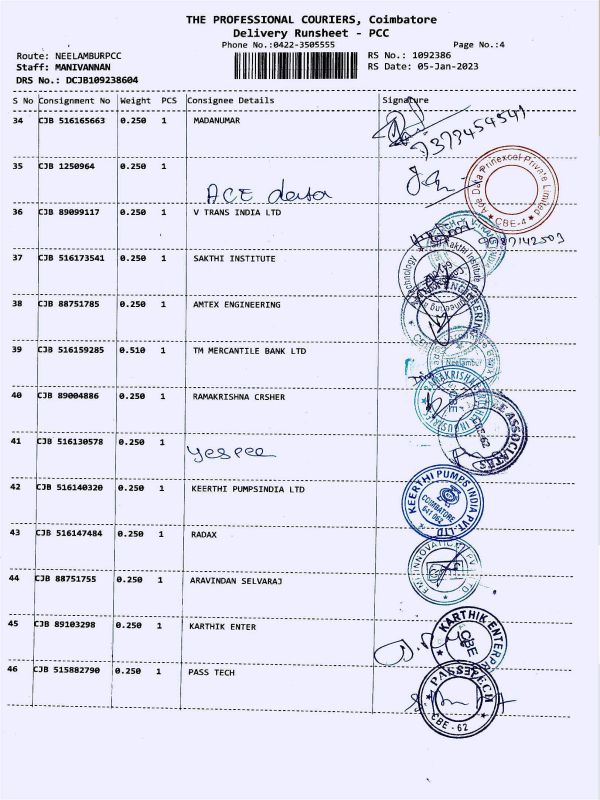 THE PROFESSIONAL COURIERS, Coimbatore
Delivery Runsheet - PCC
Phone No.:0422-3505555 Page No.:4
Route: NEELAMBURPCC RS No.: 1092386
Staff: MANIVANNAN RS Date: 05-Jan-2023
DRS No.: DCJB109238604
S No Consignment No Weight PCS Consignee Details Signature
34 CJB 516165663 0.250 1 MADANUMAR
7373454541
35 CJB 1250964 0.250 1
ACE data
Ace Data Prinexcel Private Limited
* CBE-4 *
36 CJB 89099117 0.250 1 V TRANS INDIA LTD
37 CJB 516173541 0.250 1 SAKTHI INSTITUTE
38 CJB 88751785 0.250 1 AMTEX ENGINEERING
39 CJB 516159285 0.510 1 TM MERCANTILE BANK LTD
Neelambur
40 CJB 89004886 0.250 1 RAMAKRISHNA CRSHER
41 CJB 516130578 0.250 1
yespee
ASSOCIATES
42 CJB 516140320 0.250 1 KEERTHI PUMPSINDIA LTD
KEERTHI PUMPS INDIA PVT. LTD
COIMBATORE
641 062
43 CJB 516147484 0.250 1 RADAX
44 CJB 88751755 0.250 1 ARAVINDAN SELVARAJ
45 CJB 89103298 0.250 1 KARTHIK ENTER
KARTHIK ENTERPR
CBE
46 CJB 515882790 0.250 1 PASS TECH
CBE - 62